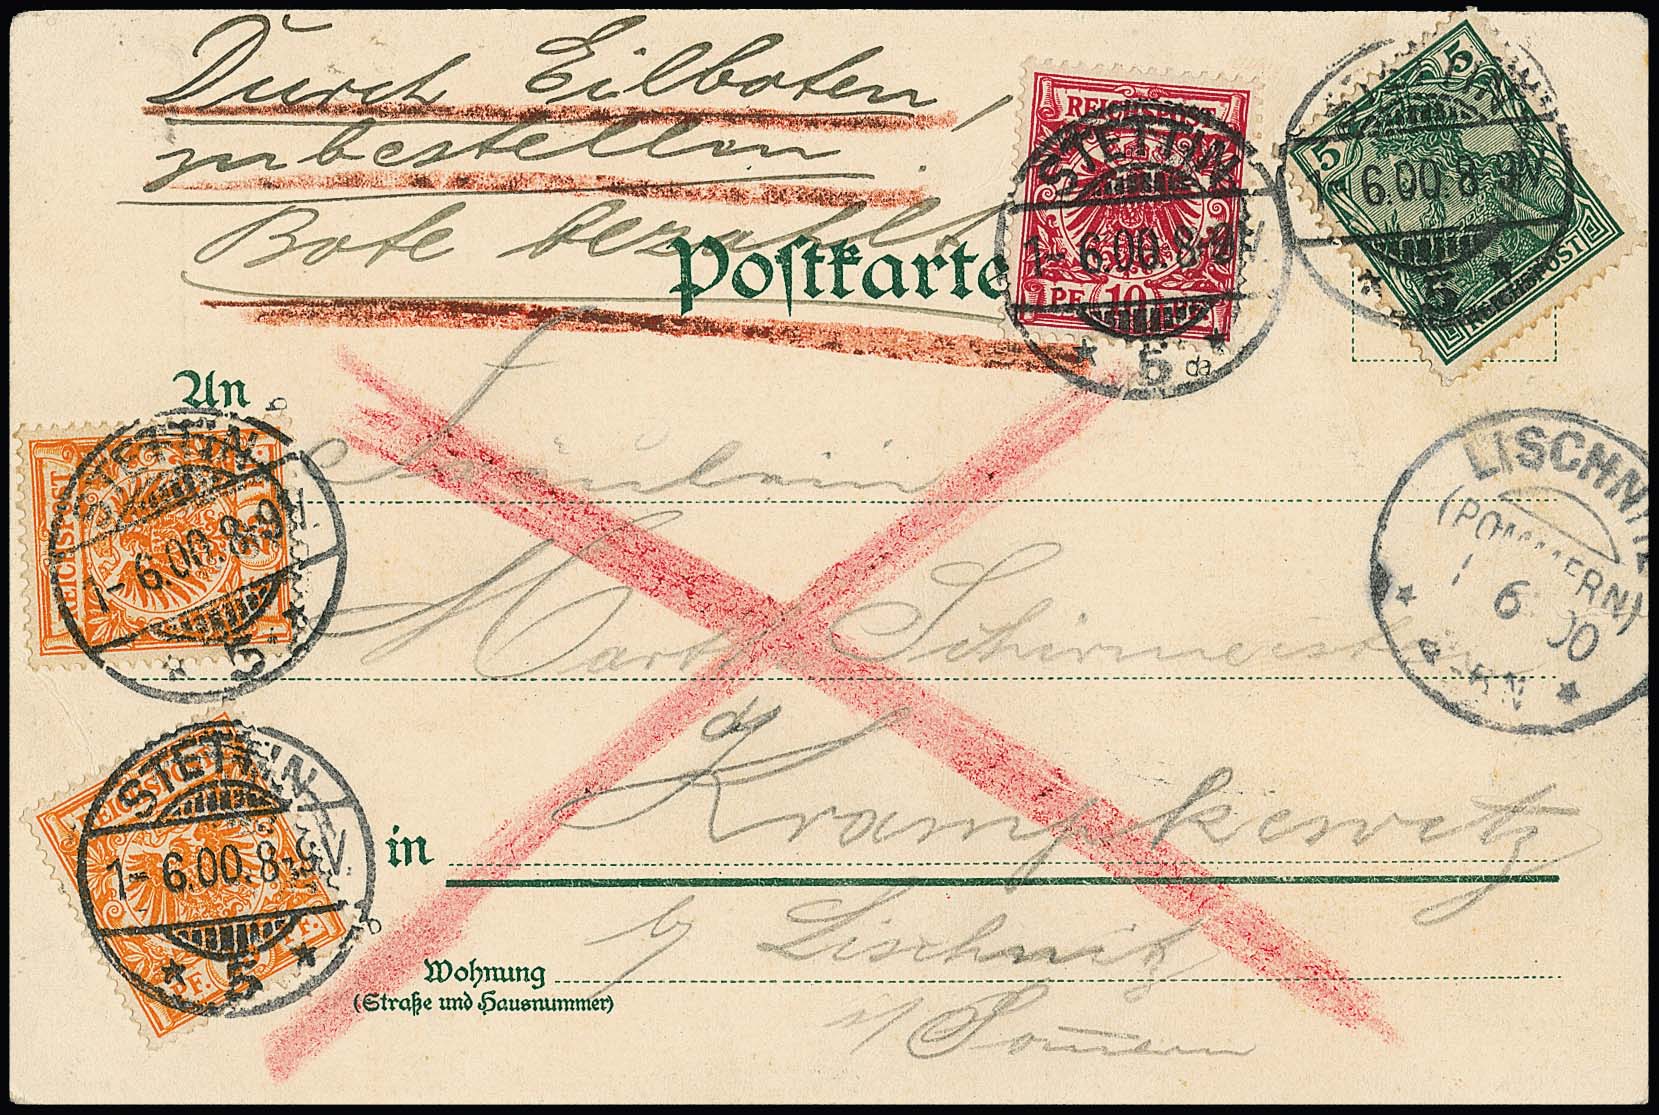 Durch Eilboten,
zu bestellen.
Bote bezahlt
Postkarte
REICHSPOST
PF 10 PF
STETTIN
1-6.00.8-9V.
* 5 *
da
5
5
REICHSPOST
6.00.8-9V
* 5 *
An
Fräulein
REICHSPOST
STETTIN
1-6.00.8-9V.
* 5 *
b
LISCHNITZ
(POMMERN)
1 6 00
BHN
Martha Schirmeister
STETTIN
1-6.00.8-9V.
* 5 *
b
in Krampkewitz
by Lischnitz
Wohnung
(Straße und Hausnummer)
i/ Pom̅ern